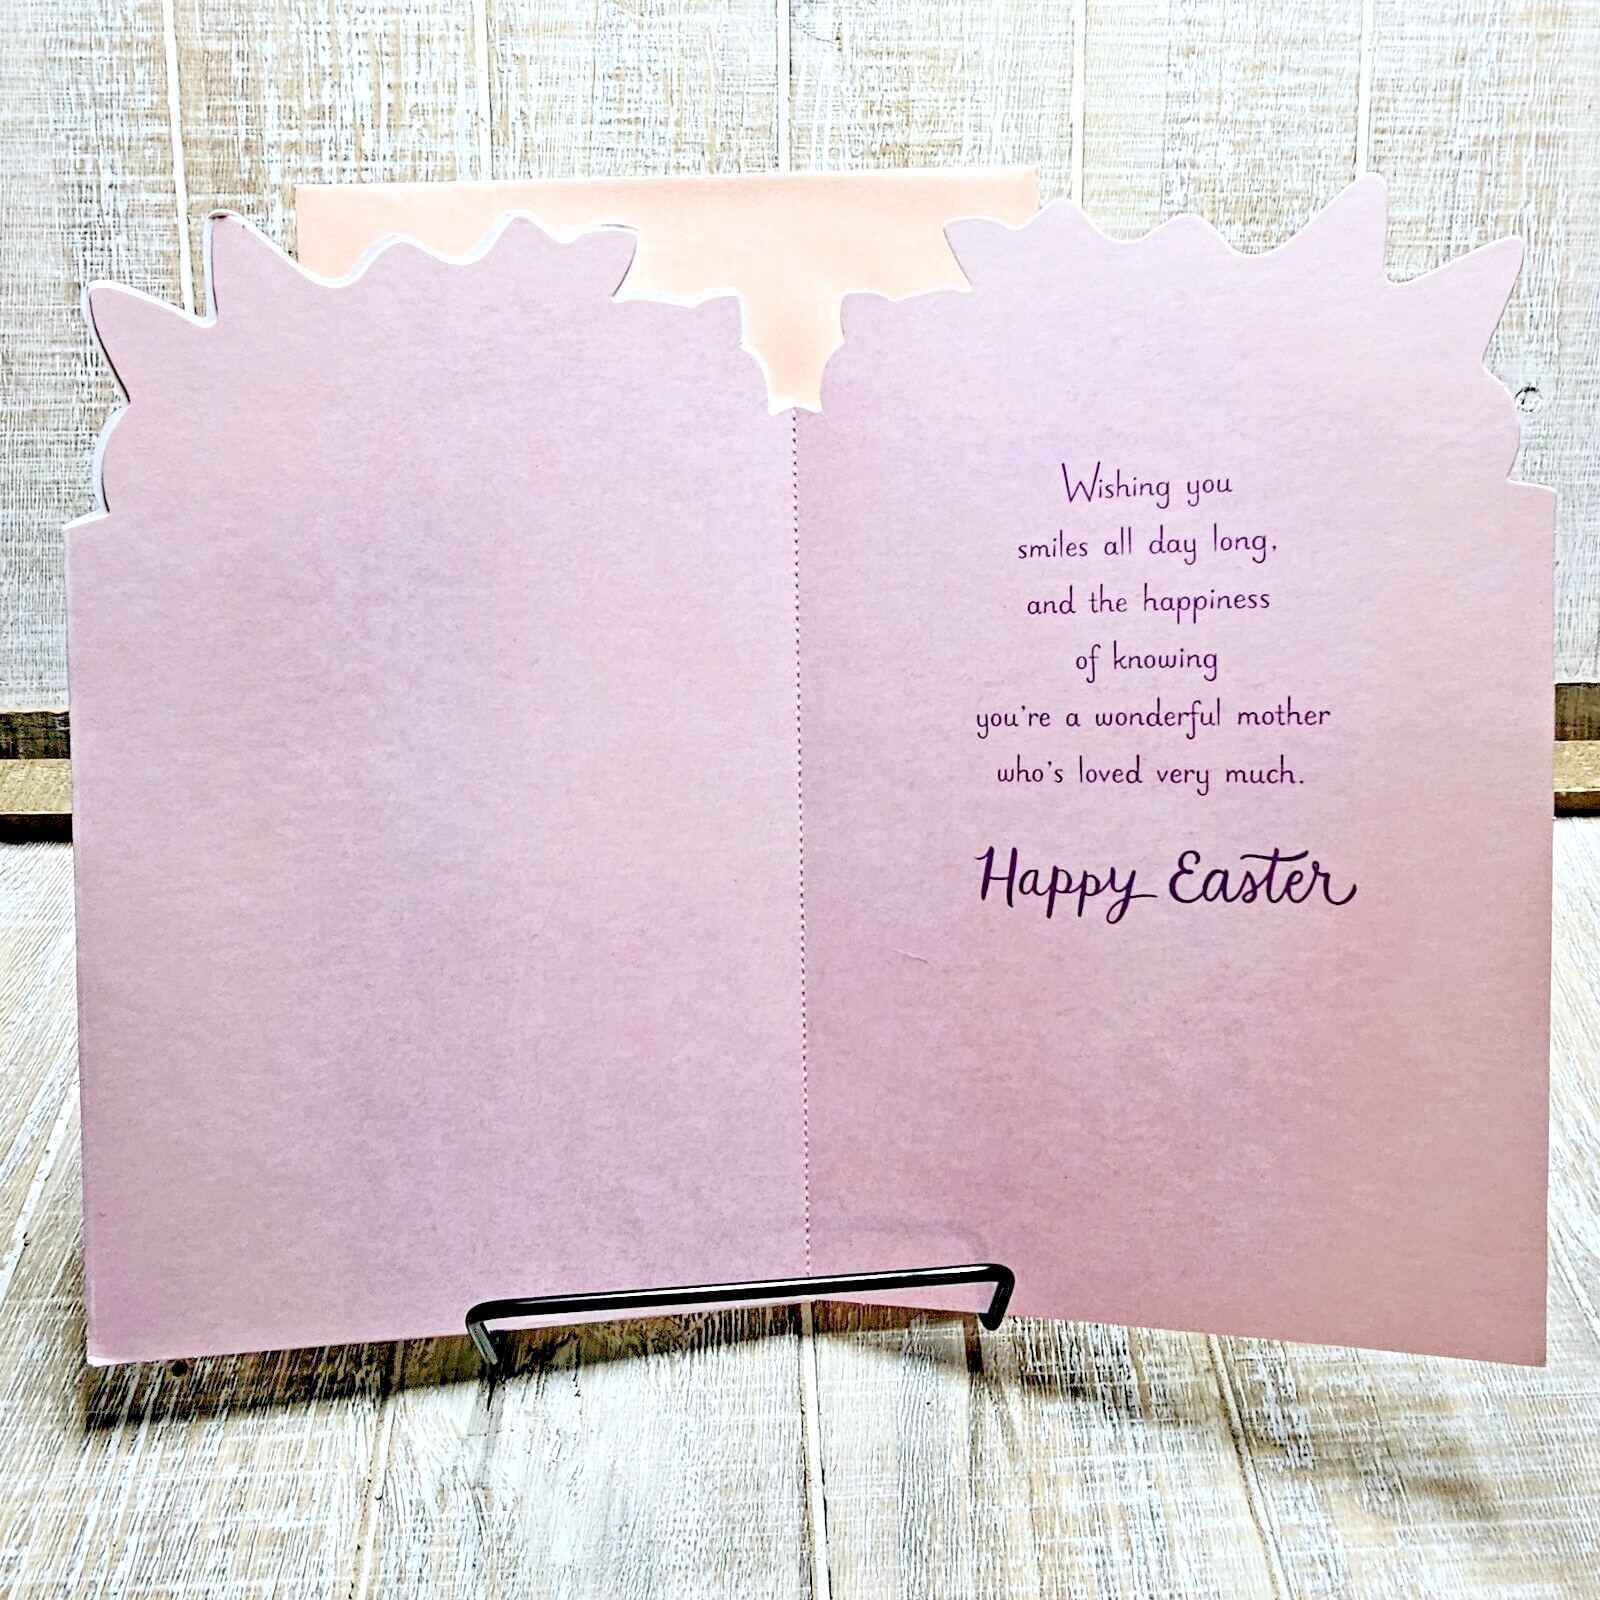 Wishing you
smiles all day long,
and the happiness
of knowing
you're a wonderful mother
who's loved very much.
Happy Easter